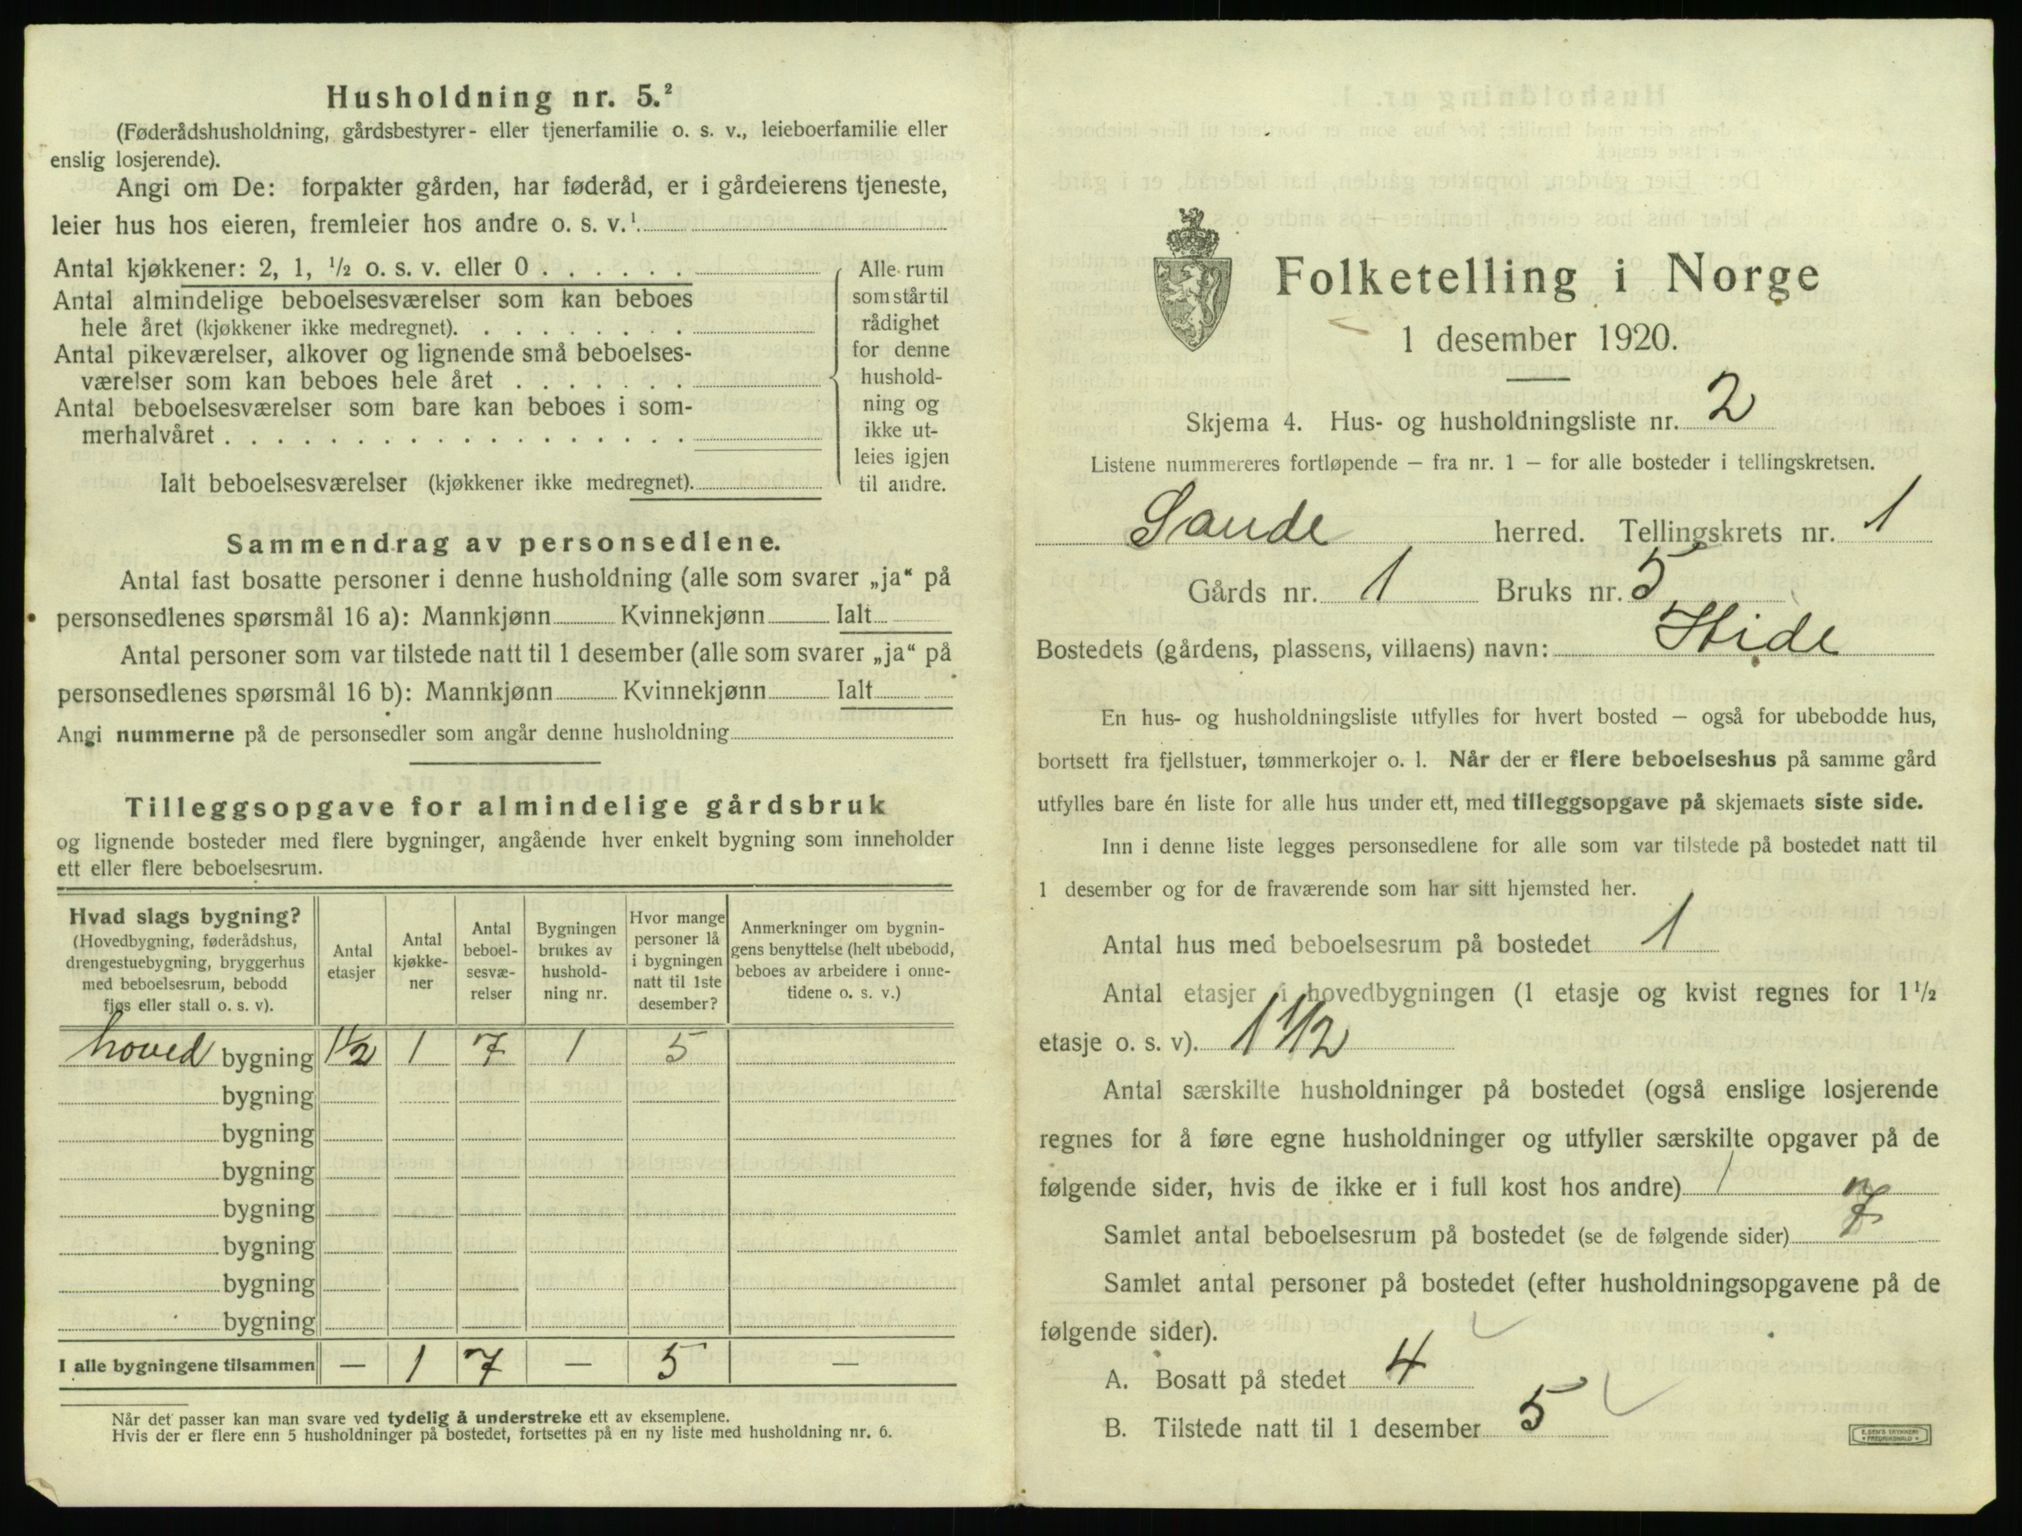 Husholdning nr. 5.²
(Føderådshusholdning, gårdsbestyrer- eller tjenerfamilie o. s. v., leieboerfamilie eller
enslig losjerende).
Angi om De: forpakter gården, har føderåd, er i gårdeierens tjeneste,
leier hus hos eieren, fremleier hos andre o. s. v.¹
Antal kjøkkener: 2, 1, ½ o. s. v. eller 0 . . . . . .
Antal almindelige beboelsesværelser som kan beboes
hele året (kjøkkener ikke medregnet). . . . . . . . .
Antal pikeværelser, alkover og lignende små beboelses-
værelser som kan beboes hele året . . . . . . .
Antal beboelsesværelser som bare kan beboes i som-
merhalvåret . . . . . . . . . . . . . . . . . .
Ialt beboelsesværelser (kjøkkener ikke medregnet).
Alle rum
som står til
rådighet
for denne
hushold-
ning og
ikke ut-
leies igjen
til andre.
Sammendrag av personsedlene.
Antal fast bosatte personer i denne husholdning (alle som svarer „ja“ på
personsedlenes spørsmål 16 a): Mannkjønn Kvinnekjønn Ialt
Antal personer som var tilstede natt til 1 desember (alle som svarer „ja“ på
personsedlenes spørsmål 16 b): Mannkjønn Kvinnekjønn Ialt
Angi nummerne på de personsedler som angår denne husholdning
Tilleggsopgave for almindelige gårdsbruk
og lignende bosteder med flere bygninger, angående hver enkelt bygning som inneholder
ett eller flere beboelsesrum.
Hvad slags bygning?
(Hovedbygning, føderådshus,
drengestuebygning, bryggerhus
med beboelsesrum, bebodd
fjøs eller stall o. s. v).
Antal
etasjer
Antal
kjøkke-
ner
Antal
beboel-
sesvæ-
relser
Bygningen
brukes av
hushold-
ning nr.
Hvor mange
personer lå
i bygningen
natt til 1ste
desember?
Anmerkninger om bygnin-
gens benyttelse (helt ubebodd,
beboes av arbeidere i onne-
tidene o. s. v.)
hoved bygning 1½ 1 7 1 5
bygning
bygning
bygning
bygning
bygning
bygning
bygning
I alle bygningene tilsammen — 1 7 — 5 —
Når det passer kan man svare ved tydelig å understreke ett av eksemplene.
Hvis der er flere enn 5 husholdninger på bostedet, fortsettes på en ny liste med husholdning nr. 6.
Folketelling i Norge
1 desember 1920.
Skjema 4. Hus- og husholdningsliste nr. 2
Listene nummereres fortløpende – fra nr. 1 – for alle bosteder i tellingskretsen.
Sande herred. Tellingskrets nr. 1
Gårds nr. 1 Bruks nr. 5
Bostedets (gårdens, plassens, villaens) navn: Hide
En hus- og husholdningsliste utfylles for hvert bosted – også for ubebodde hus,
bortsett fra fjellstuer, tømmerkojer o. l. Når der er flere beboelseshus på samme gård
utfylles bare én liste for alle hus under ett, med tilleggsopgave på skjemaets siste side.
Inn i denne liste legges personsedlene for alle som var tilstede på bostedet natt til
1 desember og for de fraværende som har sitt hjemsted her.
Antal hus med beboelsesrum på bostedet 1
Antal etasjer i hovedbygningen (1 etasje og kvist regnes for 1½
etasje o. s. v). 1 1/2
Antal særskilte husholdninger på bostedet (også enslige losjerende
regnes for å føre egne husholdninger og utfyller særskilte opgaver på de
følgende sider, hvis de ikke er i full kost hos andre) 1
Samlet antal beboelsesrum på bostedet (se de følgende sider) 7
Samlet antal personer på bostedet (efter husholdningsopgavene på de
følgende sider).
A. Bosatt på stedet 4
B. Tilstede natt til 1 desember 5